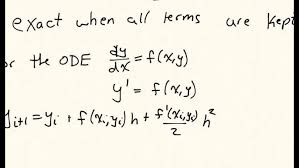 exact when all terms are kept
for the ODE dy/dx = f(x,y)
y' = f(x,y)
y_{i+1} = y_i + f(x_i,y_i)h + f'(x_i,y_i)/2 h^2